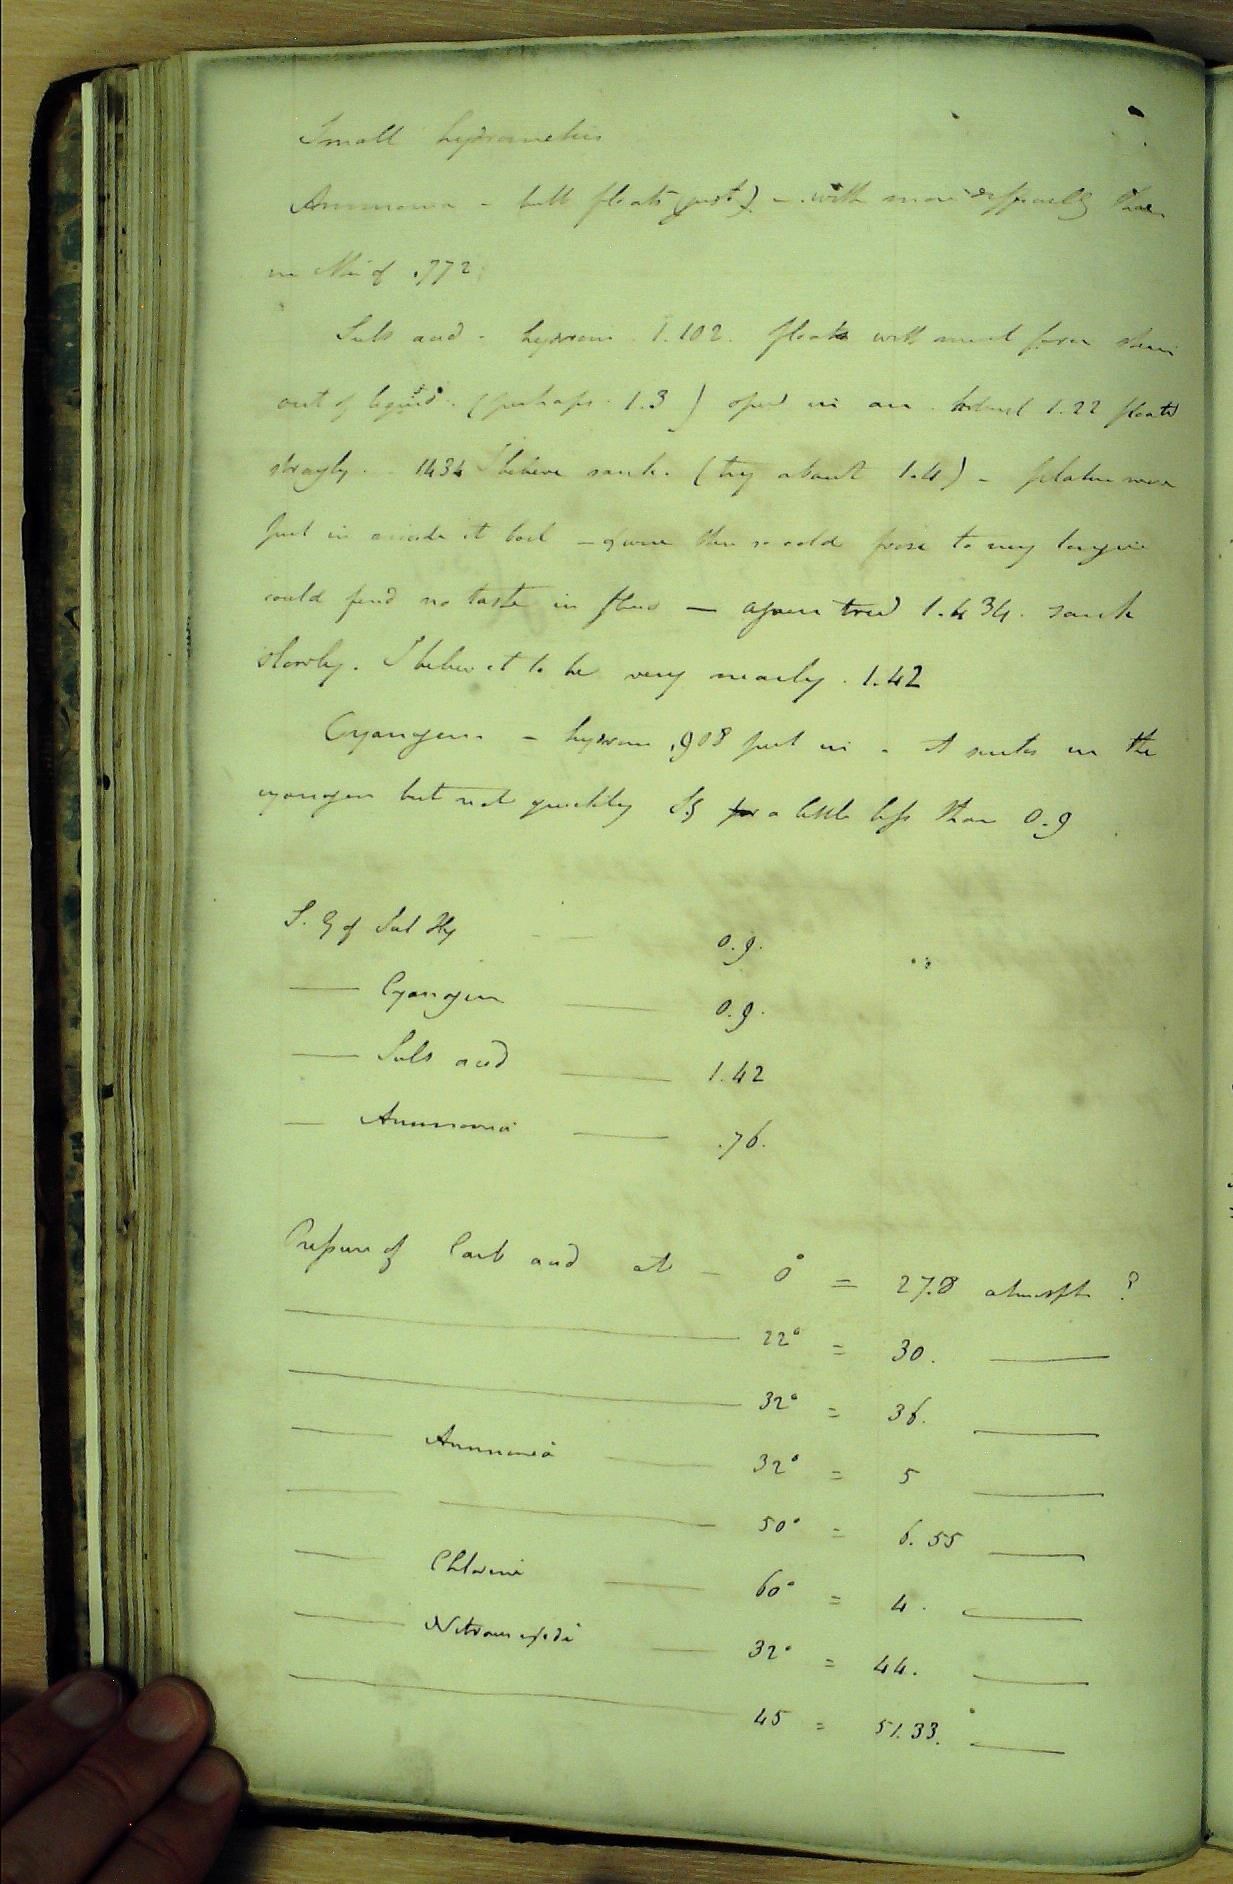 Small hydrometers
Ammonia - bulb floats (just) - with more difficulty than
in Mix of .772
Sulp acid - hydrom. 1.102. floats with much force
out of liquid. (perhaps 1.3) open in air. 1.22 floats
strongly. 1434 I believe sank. (try about 1.4) - platina wire
put in made it boil - so cold froze to my tongue
could find no taste in fluid — again tried 1.434. sank
slowly. I believe it to be very nearly. 1.42
Cyanogen - hydrom .908 put in - it sinks in the
cyanogen but not quickly Is a little less than 0.9
S. G of Sul Hy - — 0.9.
— Cyanogen — 0.9.
— Sulp acid — 1.42
— Ammonia — .76.
Pressure of Carb acid at - 0° = 27.8 atmosph ?
— 22° = 30. —
— 32° = 36. —
— Ammonia — 32° = 5 —
— — 50° = 6.55 —
— Chlorine — 60° = 4. —
— Nitrous oxide — 32° = 44. —
— 45 = 51.33. —